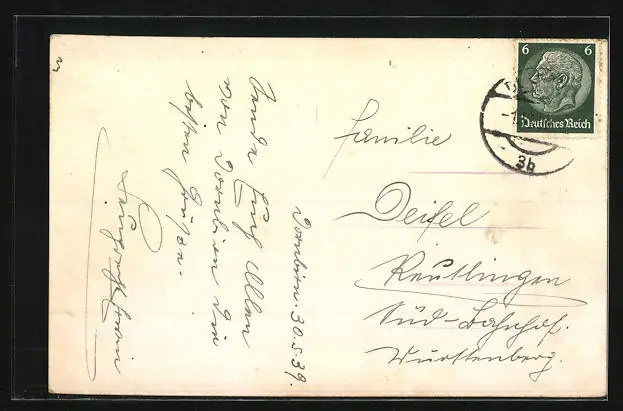 6 6
Deutsches Reich
3b
Familie
Deisel
Reutlingen
Süd-Bahnhof.
Württenberg.
Dornbirn. 30.5.39.
Sende Euch Allen
von Dornbirn die
besten Grüße.